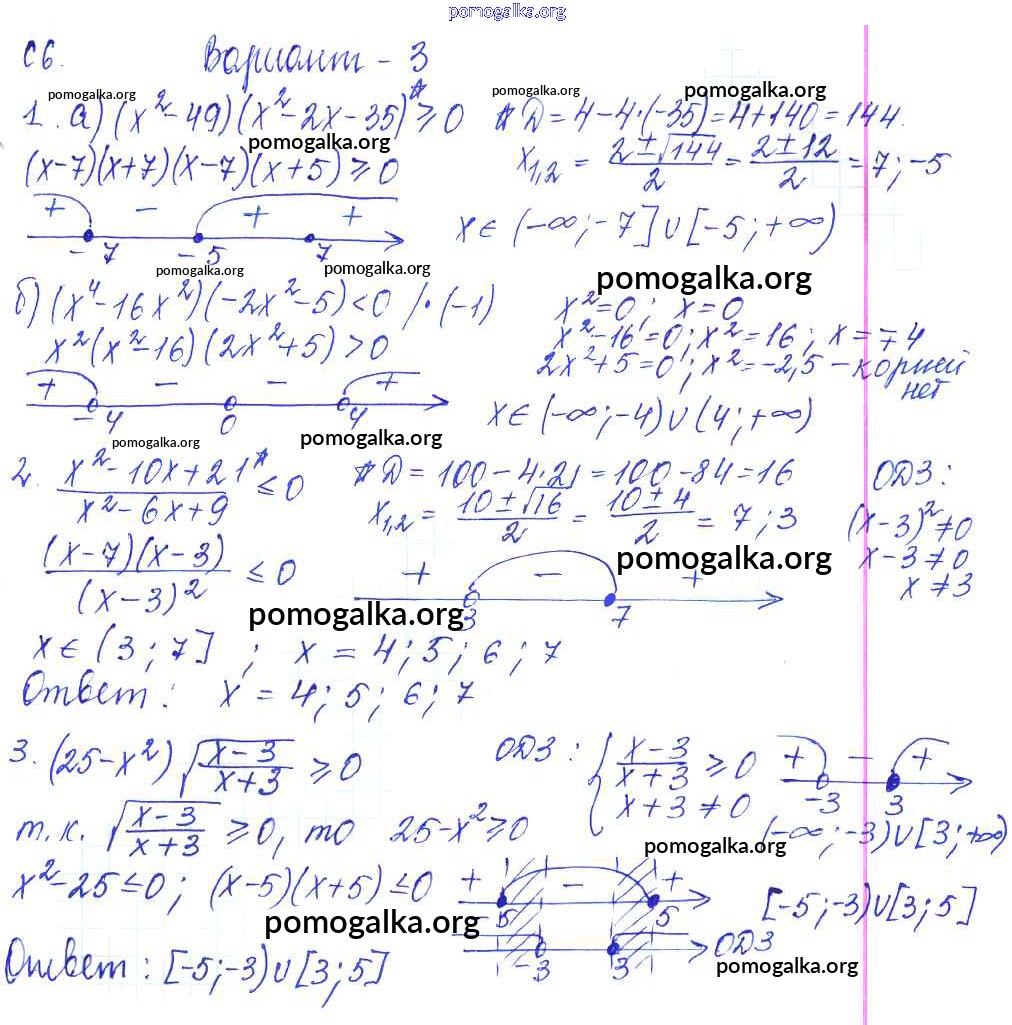 pomogalka.org
С6. Вариант - 3
pomogalka.org pomogalka.org pomogalka.org
1. а) (x²-49)(x²-2x-35)* ≥ 0 * Д = 4-4·(-35) = 4+140 = 144.
pomogalka.org
(x-7)(x+7)(x-7)(x+5) ≥ 0 x₁,₂ = (2±√144)/2 = (2±12)/2 = 7; -5
+ - + +
-7 -5 7 x ∈ (-∞; -7] ∪ [-5; +∞)
pomogalka.org pomogalka.org pomogalka.org
б) (x⁴-16x²)(-2x²-5) < 0 /·(-1) x² = 0; x = 0
x²(x²-16)(2x²+5) > 0 x²-16 = 0; x² = 16; x = ∓4
2x²+5 = 0; x² = -2,5 - корней нет
+ - - +
-4 0 4 x ∈ (-∞; -4) ∪ (4; +∞)
pomogalka.org pomogalka.org
2. (x²-10x+21*)/(x²-6x+9) ≤ 0 * Д = 100-4·21 = 100-84 = 16 ОДЗ:
x₁,₂ = (10±√16)/2 = (10±4)/2 = 7; 3 (x-3)² ≠ 0
pomogalka.org x-3 ≠ 0
((x-7)(x-3))/(x-3)² ≤ 0 + - + x ≠ 3
3 7
pomogalka.org
x ∈ (3; 7]; x = 4; 5; 6; 7
Ответ: x = 4; 5; 6; 7
3. (25-x²)√((x-3)/(x+3)) ≥ 0 ОДЗ: { (x-3)/(x+3) ≥ 0 + - +
x+3 ≠ 0 -3 3
т.к. √((x-3)/(x+3)) ≥ 0, то 25-x² ≥ 0 (-∞; -3) ∪ [3; +∞)
pomogalka.org
x²-25 ≤ 0; (x-5)(x+5) ≤ 0 + - +
5 5 [-5; -3) ∪ [3; 5]
pomogalka.org
-3 3 ОДЗ
Ответ: [-5; -3) ∪ [3; 5]
pomogalka.org